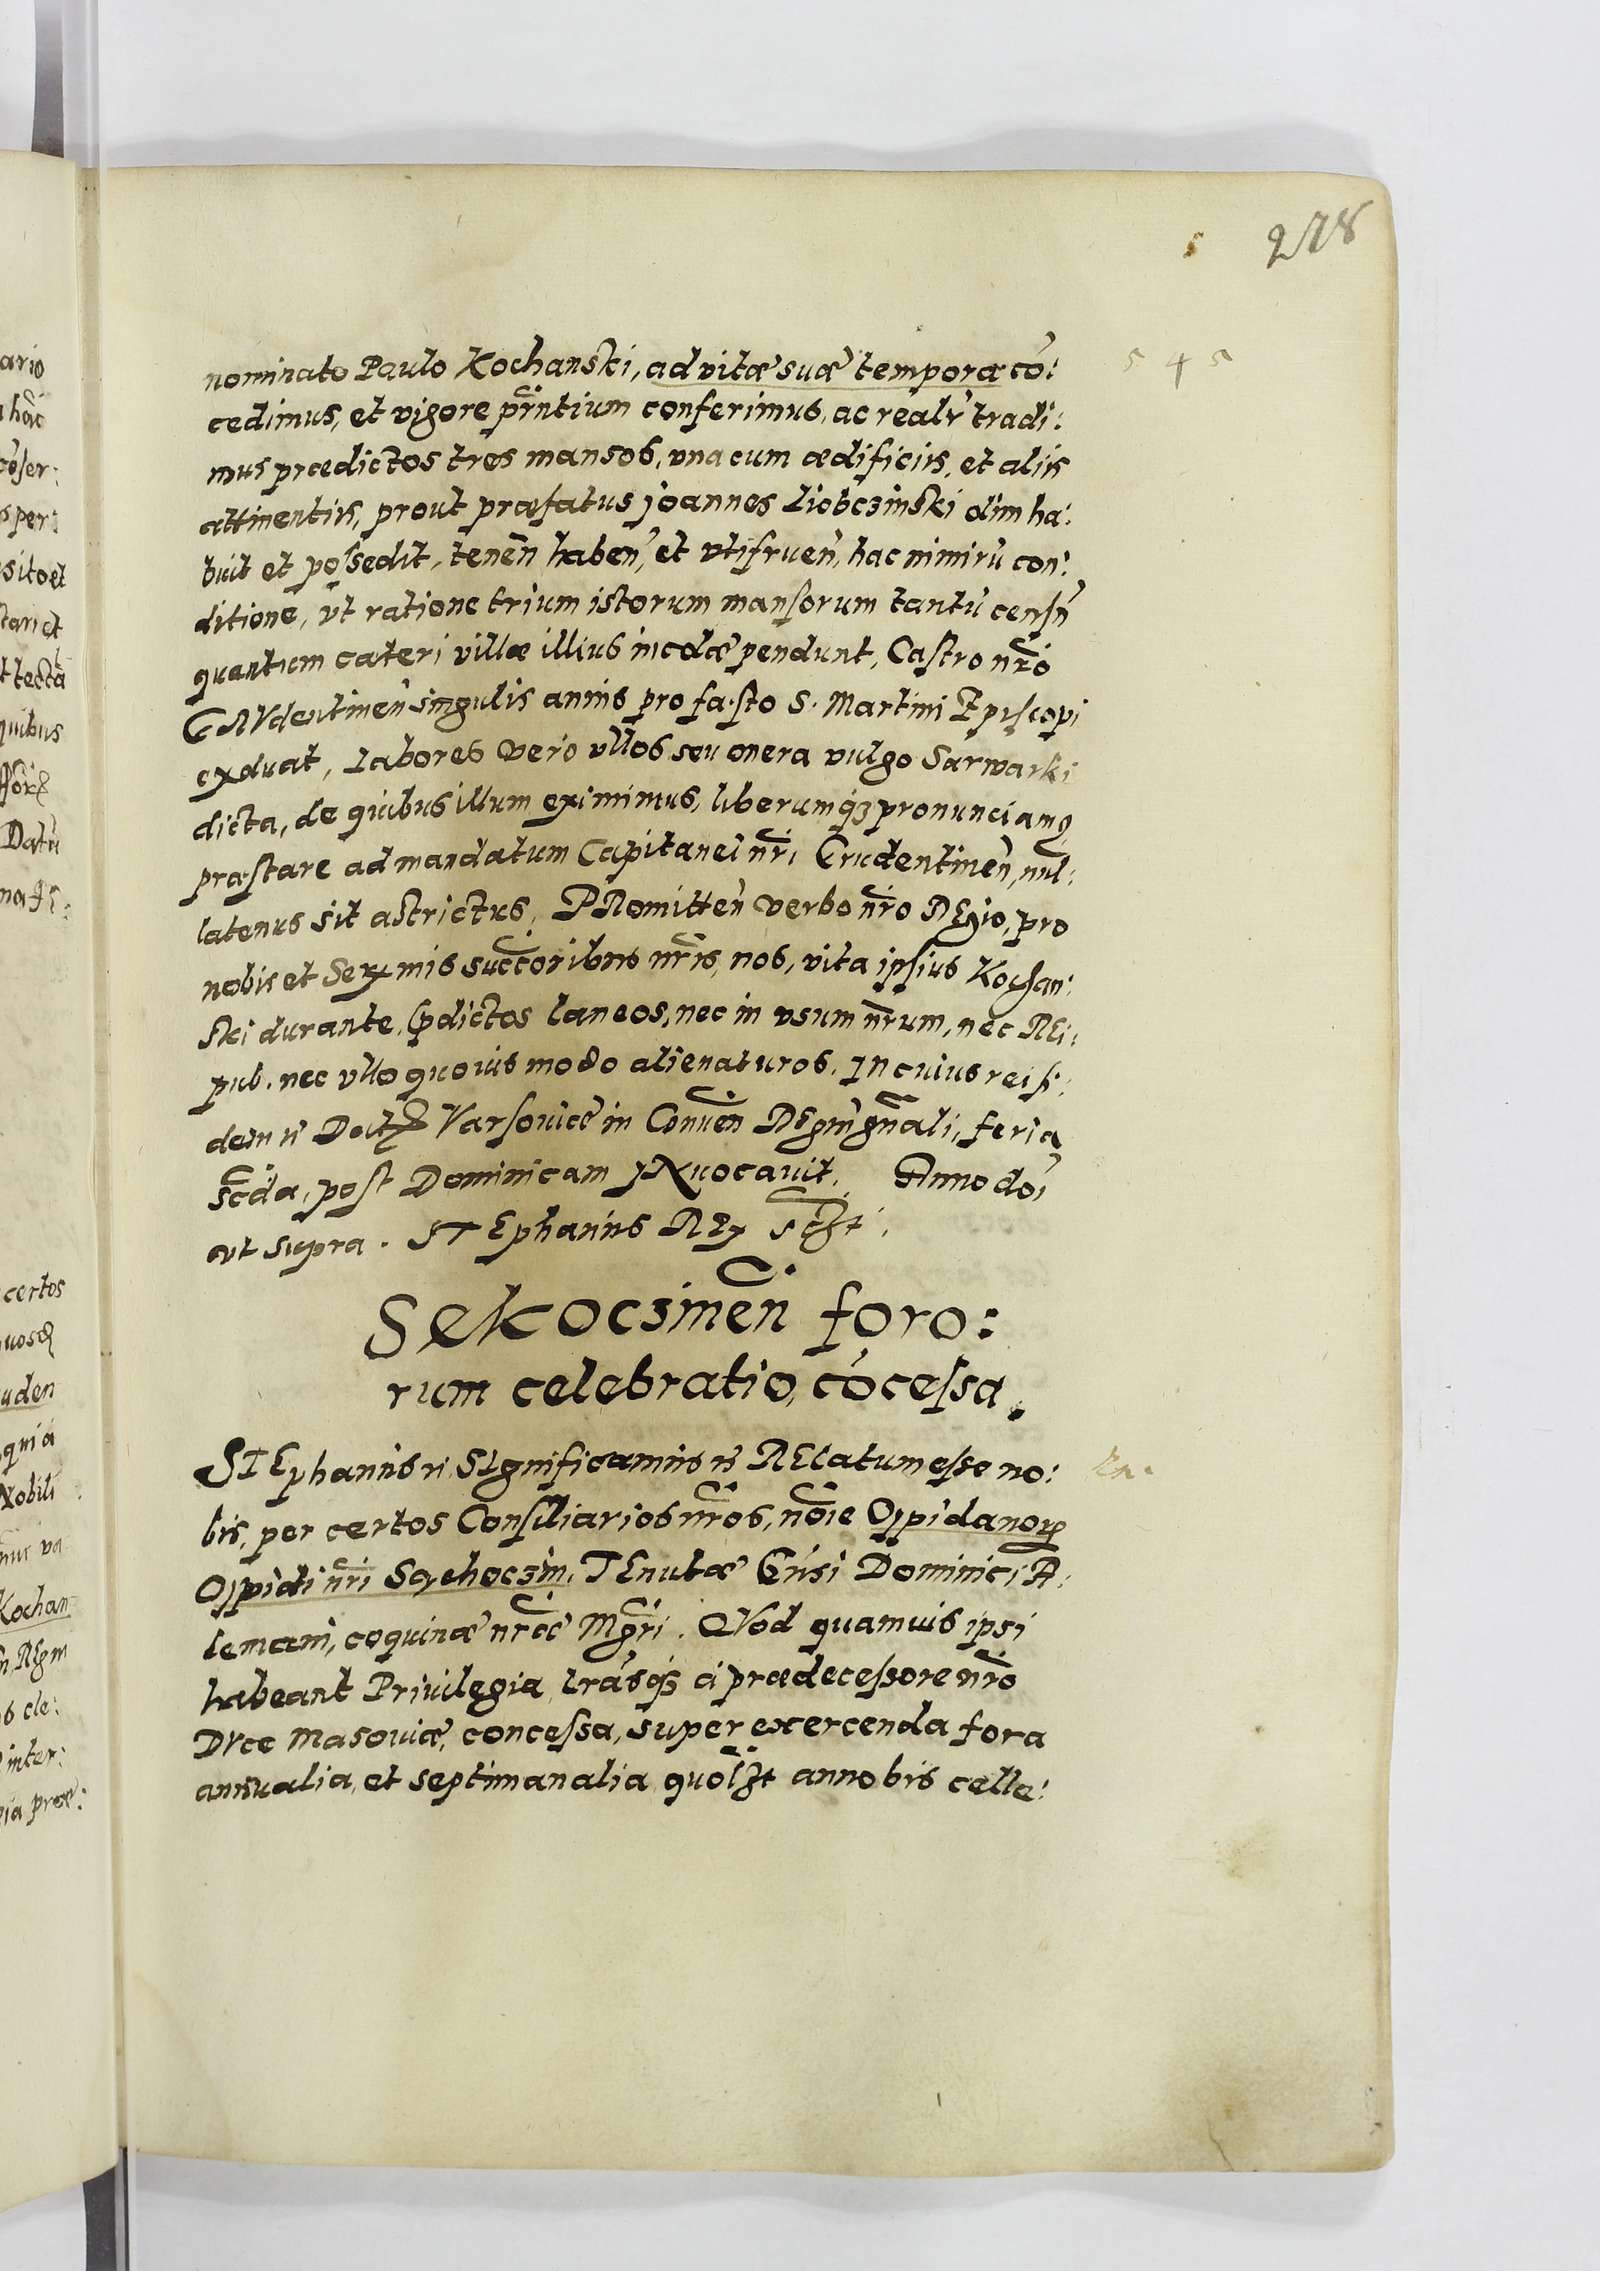 278
545
nominato Paulo Kochanski, ad vitæ suæ tempora có:
cedimus, et vigore prñtium conferimus, ac realr̃ tradi:
mus prædictos tres mansos, vna cum ædificiis, et aliis
attinentiis, prout præfatus joannes Liobczinski olim ha:
buit et possedit, tenen̄ haben̄, et vtifruen̄, hac nimirù con:
ditione, vt ratione trium istorum mansorum tantù censũ
quantum cæteri villæ illius incolæ pendunt, Castro nr̃o
GRVdentinen̄ singulis annis pro fæsto S. Martini Episcopi
exoluat, Labores vero vllos seu onera vulgo Sarwarki
dicta, de quibus illum eximimus, liberumq3 pronunciamꝯ
præstare ad mandatum Capitanei nr̃i Grudentinen̄, nul:
latenus sit astrictus, PRomitten̄ verbo nr̃o REgio, pro
nobis et Ser̃mis succ̃oribus nr̃is, nos, vita ipsius Kochan:
ski durante, p̃dictos laneos, nec in vsum nr̃um, nec REi:
pub. nec vllo quouis modo alienaturos. In cuius rei fi:
dem Varsouiæ in Conuen̄ REgni gn̄ali, feria
sc̃da, post Dominicam INuocauit. Anno doı̃
vt supra. STEphanus REx
Sekoczinen̄ foro:
rum celebratio, cócessa.
STEphanus SIgnificamus RElatum esse no:
bis, per certos Consiliarios nr̃os, nõie Oppidanoꝝ
Oppidi nr̃i TEnutæ Gñsi Dominici A:
lemani, coquinæ nr̃æ Mgr̃i. QVod quamuis ipsi
habeant Priuilegia, lr̃asq3 à prædecessore nr̃o
DVce Masouiæ, concessa, super exercenda fora
annualia, et septimanalia, quolȝt anno bis celle: